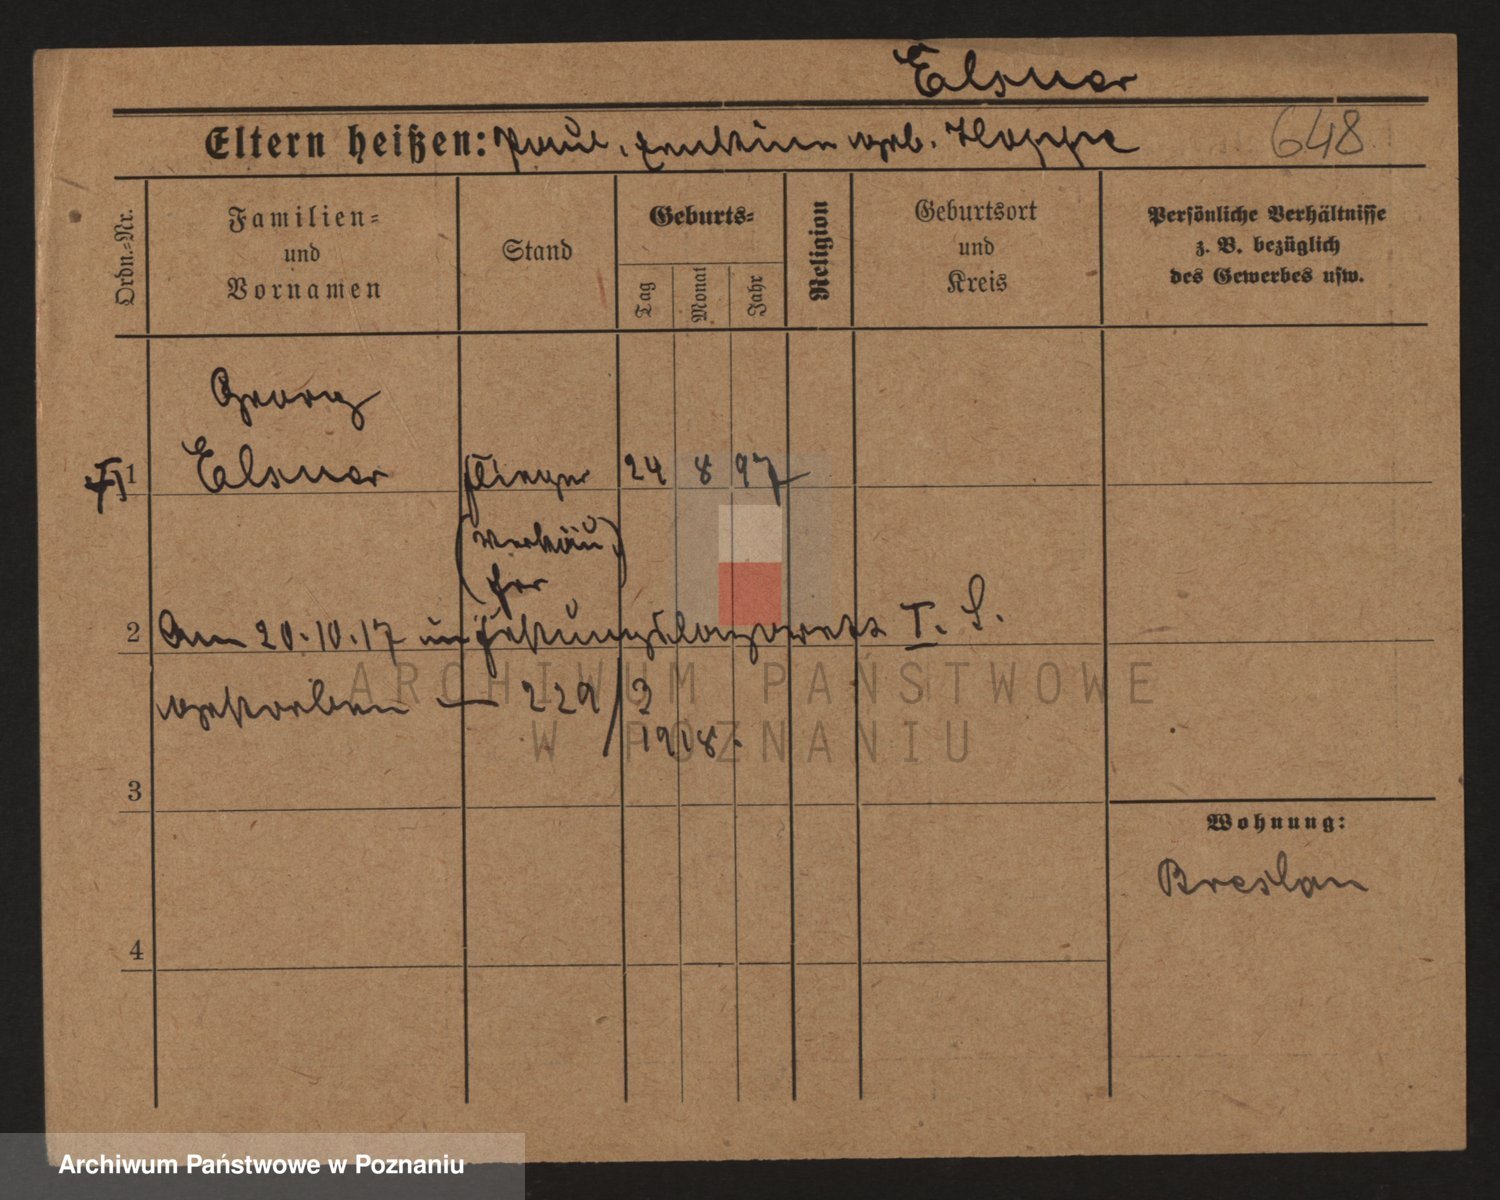 Elsner
Eltern heißen: Paul, Ernstine geb. Hoppe 648
Ordn.=Nr.
Familien=
und
Vornamen
Stand
Geburts=
Tag
Monat
Jahr
Religion
Geburtsort
und
Kreis
Persönliche Verhältnisse
z. B. bezüglich
des Gewerbes usw.
Georg
1 Elsner Flieger 24 8 97
(Verkäu
fer)
2 Am 20.10.17 im Festungslazarett I. S.
gestorben — 229/3
1918.
3
Wohnung:
Breslau
4
ARCHIWUM PAŃSTWOWE
W POZNANIU
Archiwum Państwowe w Poznaniu